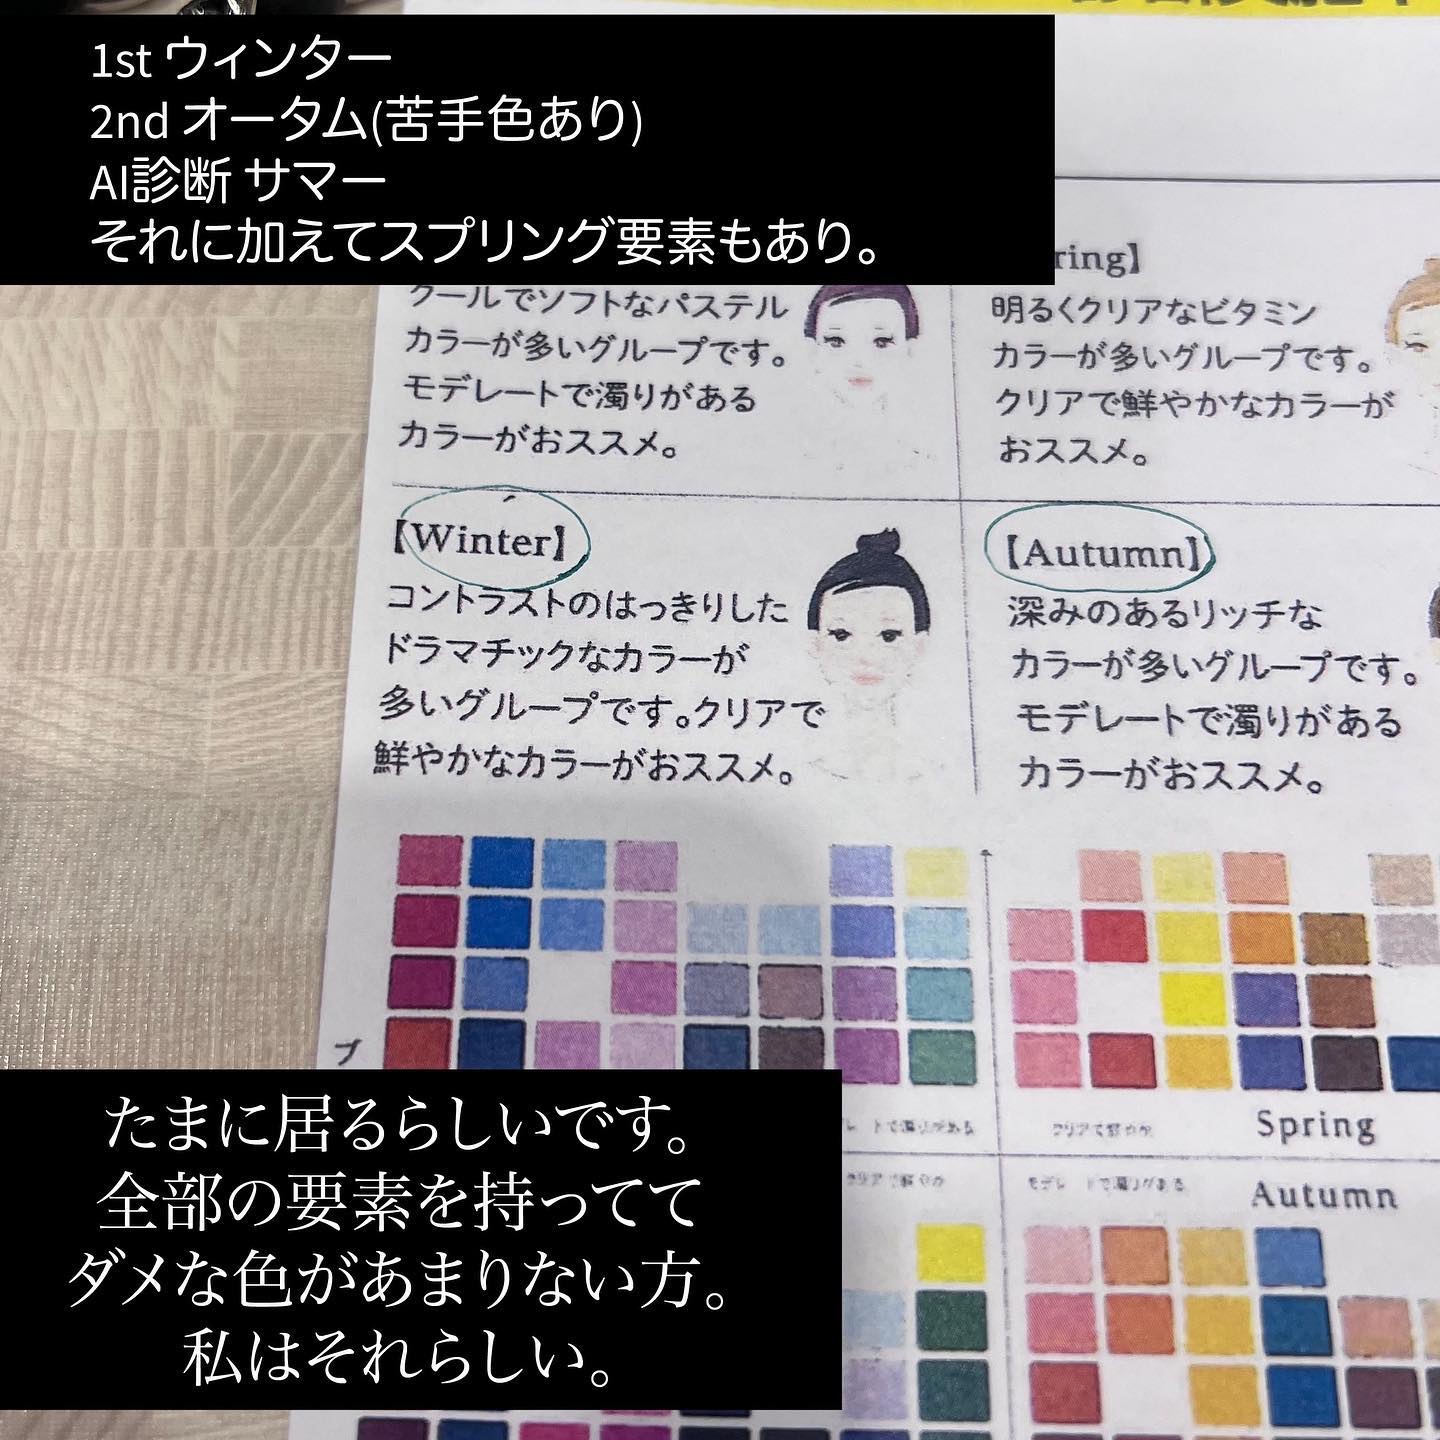 1st ウィンター
2nd オータム(苦手色あり)
AI診断 サマー
それに加えてスプリング要素もあり。
ring】
クールでソフトなパステル
カラーが多いグループです。
モデレートで濁りがある
カラーがおススメ。
明るくクリアなビタミン
カラーが多いグループです。
クリアで鮮やかなカラーが
おススメ。
【Winter】
コントラストのはっきりした
ドラマチックなカラーが
多いグループです。クリアで
鮮やかなカラーがおススメ。
【Autumn】
深みのあるリッチな
カラーが多いグループです。
モデレートで濁りがある
カラーがおススメ。
ブ
トで濁りがある
クリアで鮮やか
Spring
クリアで鮮やか
モデレートで濁りがある
Autumn
たまに居るらしいです。
全部の要素を持ってて
ダメな色があまりない方。
私はそれらしい。